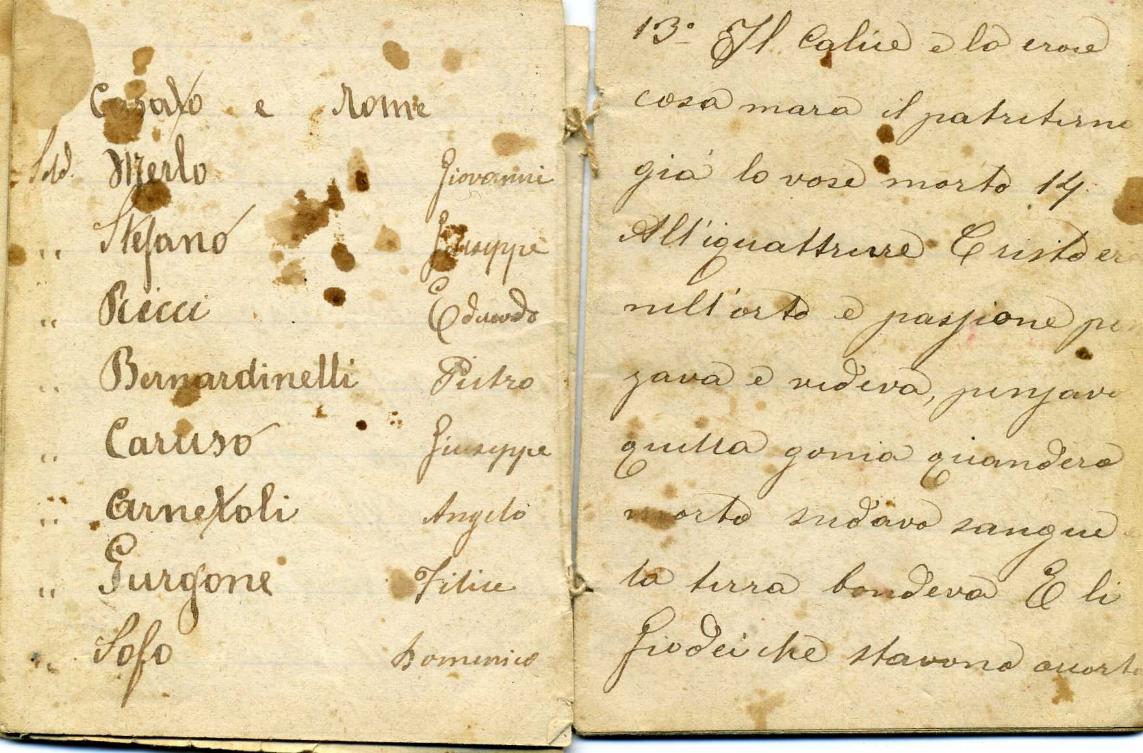 Casato e Nome
Sold. Merlo Giovanni
,, Stefano Giuseppe
,, Ricci Edurdo
,, Bernardinelli Pietro
,, Caruso Giuseppe
,, Angelo
,, Gurgone Filice
,, Sofo Domenico
13° Il Calice e la croce
cosa mara il patriterno
già lo vose morto 14
All'iquattrurre Cristo er
nell'orto e passione pe
zava e videva, penzave
quella gonia quandera
morto sudava sangue
la terra bondeva E li
Giodei che stavono